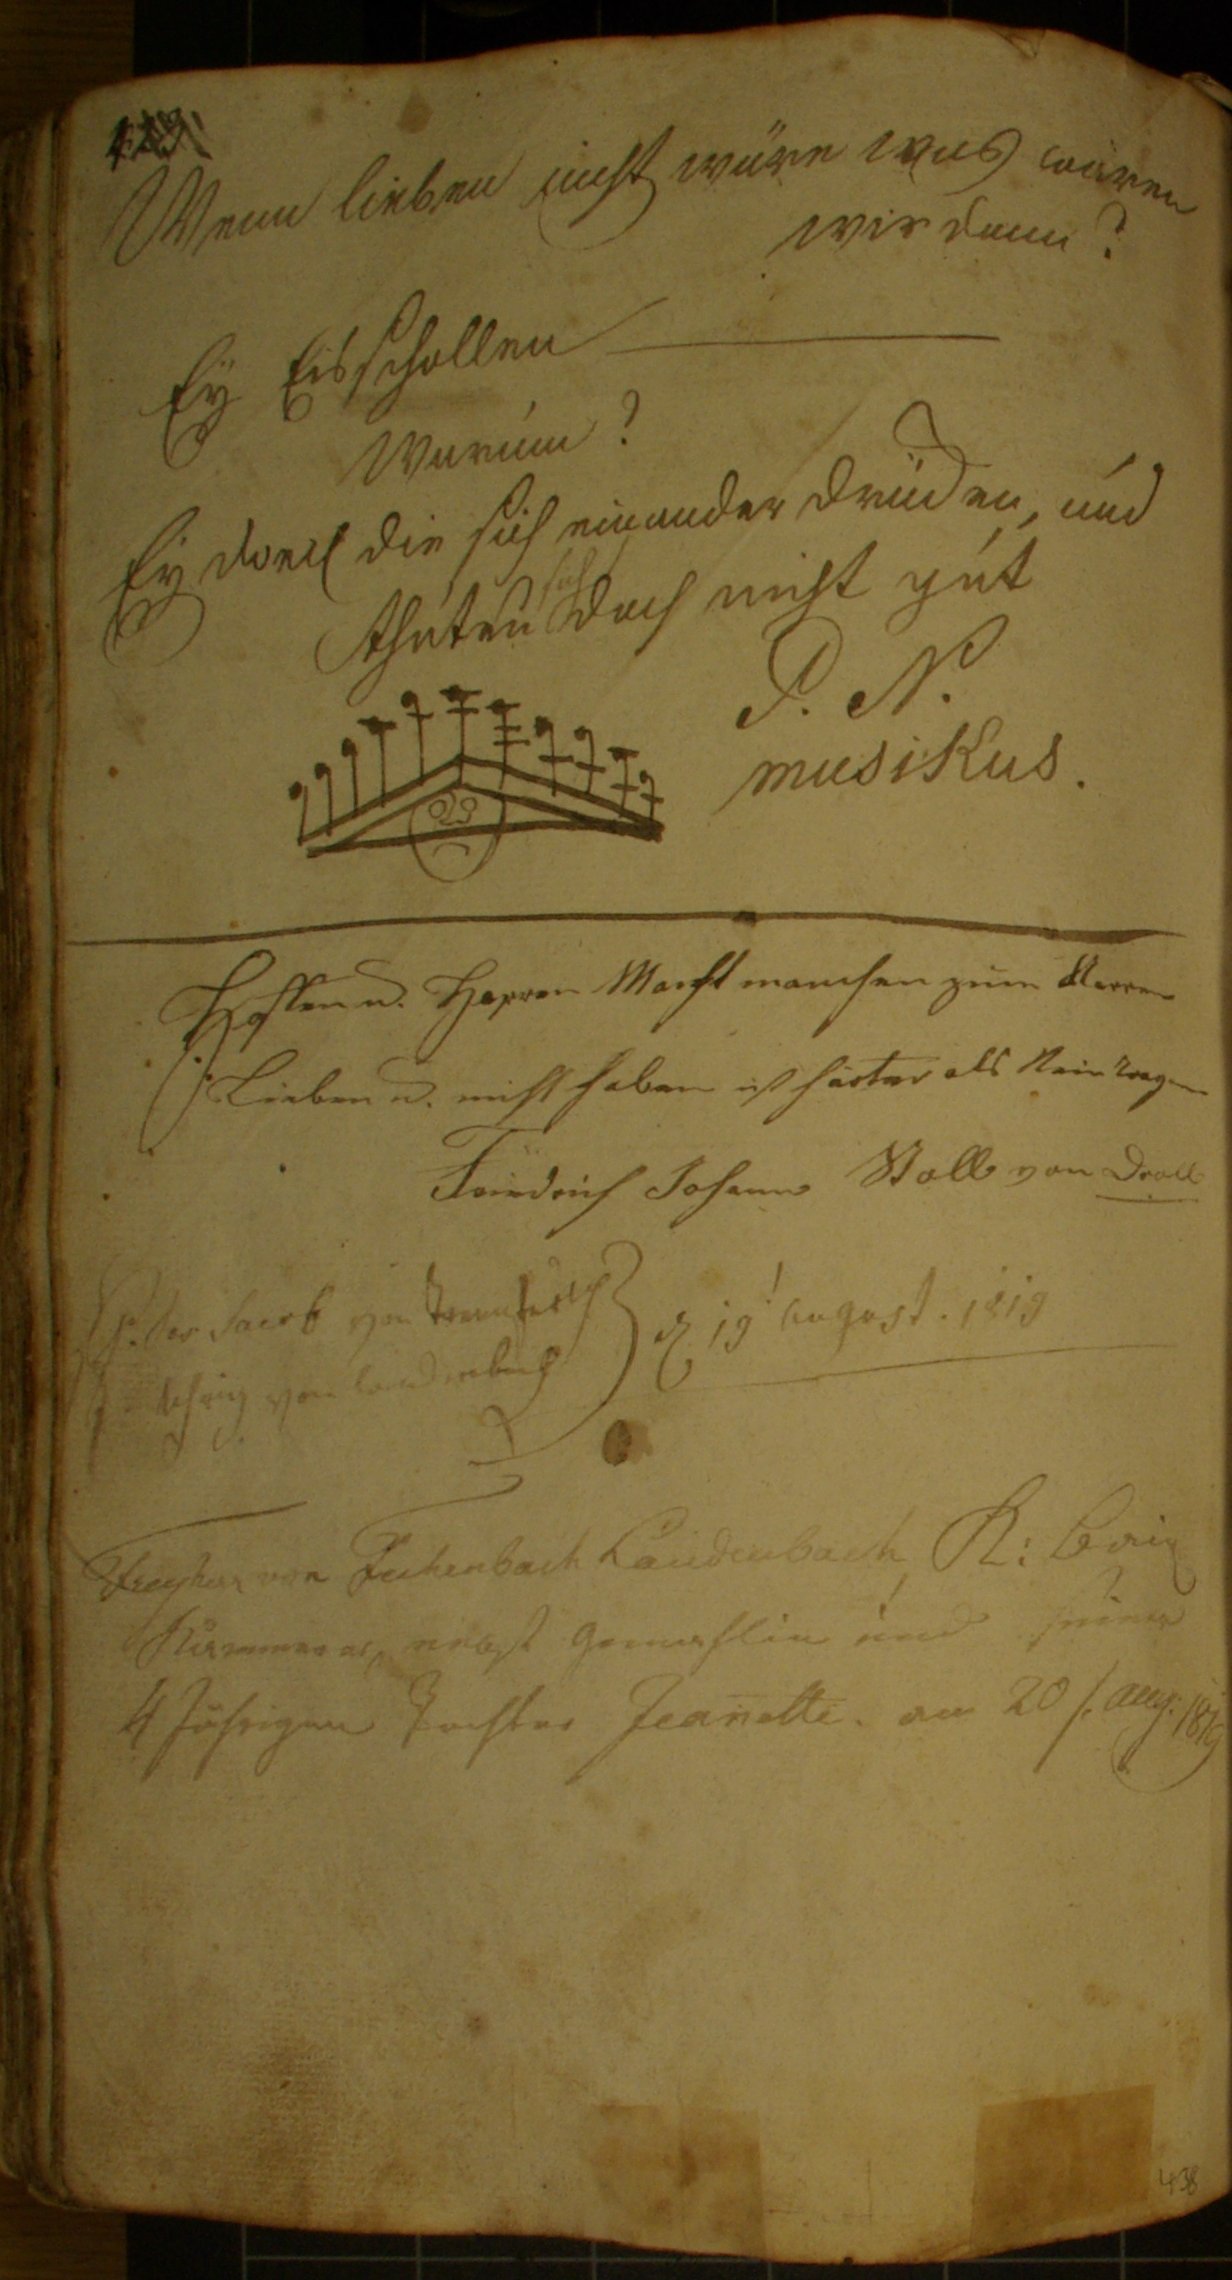 Wenn lieben nicht wäre was wären
wir dann?
Ey Eisschollen
Warum?
Ey weil die sich einander drücken, und
thuten sich doch nicht gut
P. N.
musikus.
Hoffen u. Harren Macht manchen zum Narren
Lieben u. nicht haben ist härter als Stein
Friedrich Johann Stoll von
Jacob von
von Laudenbach
d 19 August. 1819
Freyherr von Fechenbach Laudenbach K:
nebst Gemahlin und seiner
4 Jährigen Tochter Jeanette. am 20 t. Aug. 1819
438